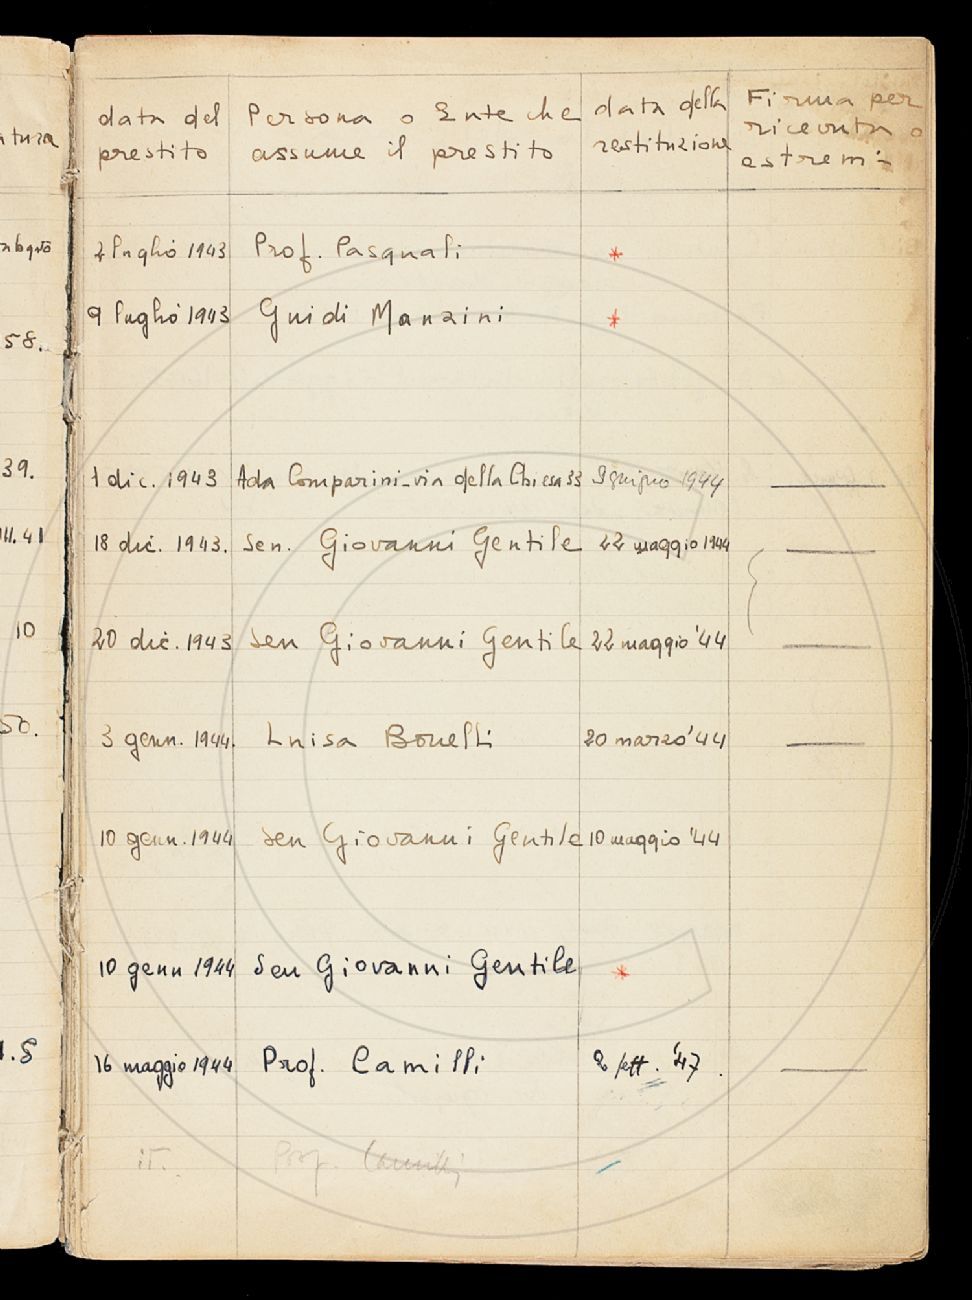 data del prestito | Persona o Ente che assume il prestito | data della restituzione | Firma per ricevuta o estremi
2 luglio 1943 Prof. Pasquali *
9 luglio 1943 Guidi Manzini *
58.
39. 1 dic. 1943 Ada Comparini-via della Chiesa 33 9 giugno 1944
41 18 dic. 1943. Sen. Giovanni Gentile 22 maggio 1944
10 20 dic. 1943 Sen Giovanni Gentile 22 maggio '44
50. 3 genn. 1944. Luisa Bonelli 20 marzo '44
10 genn. 1944 Sen Giovanni Gentile 10 maggio '44
10 genn 1944 Sen Giovanni Gentile *
16 maggio 1944 Prof. Camilli 2 sett. '47.
it. Prof. Camilli